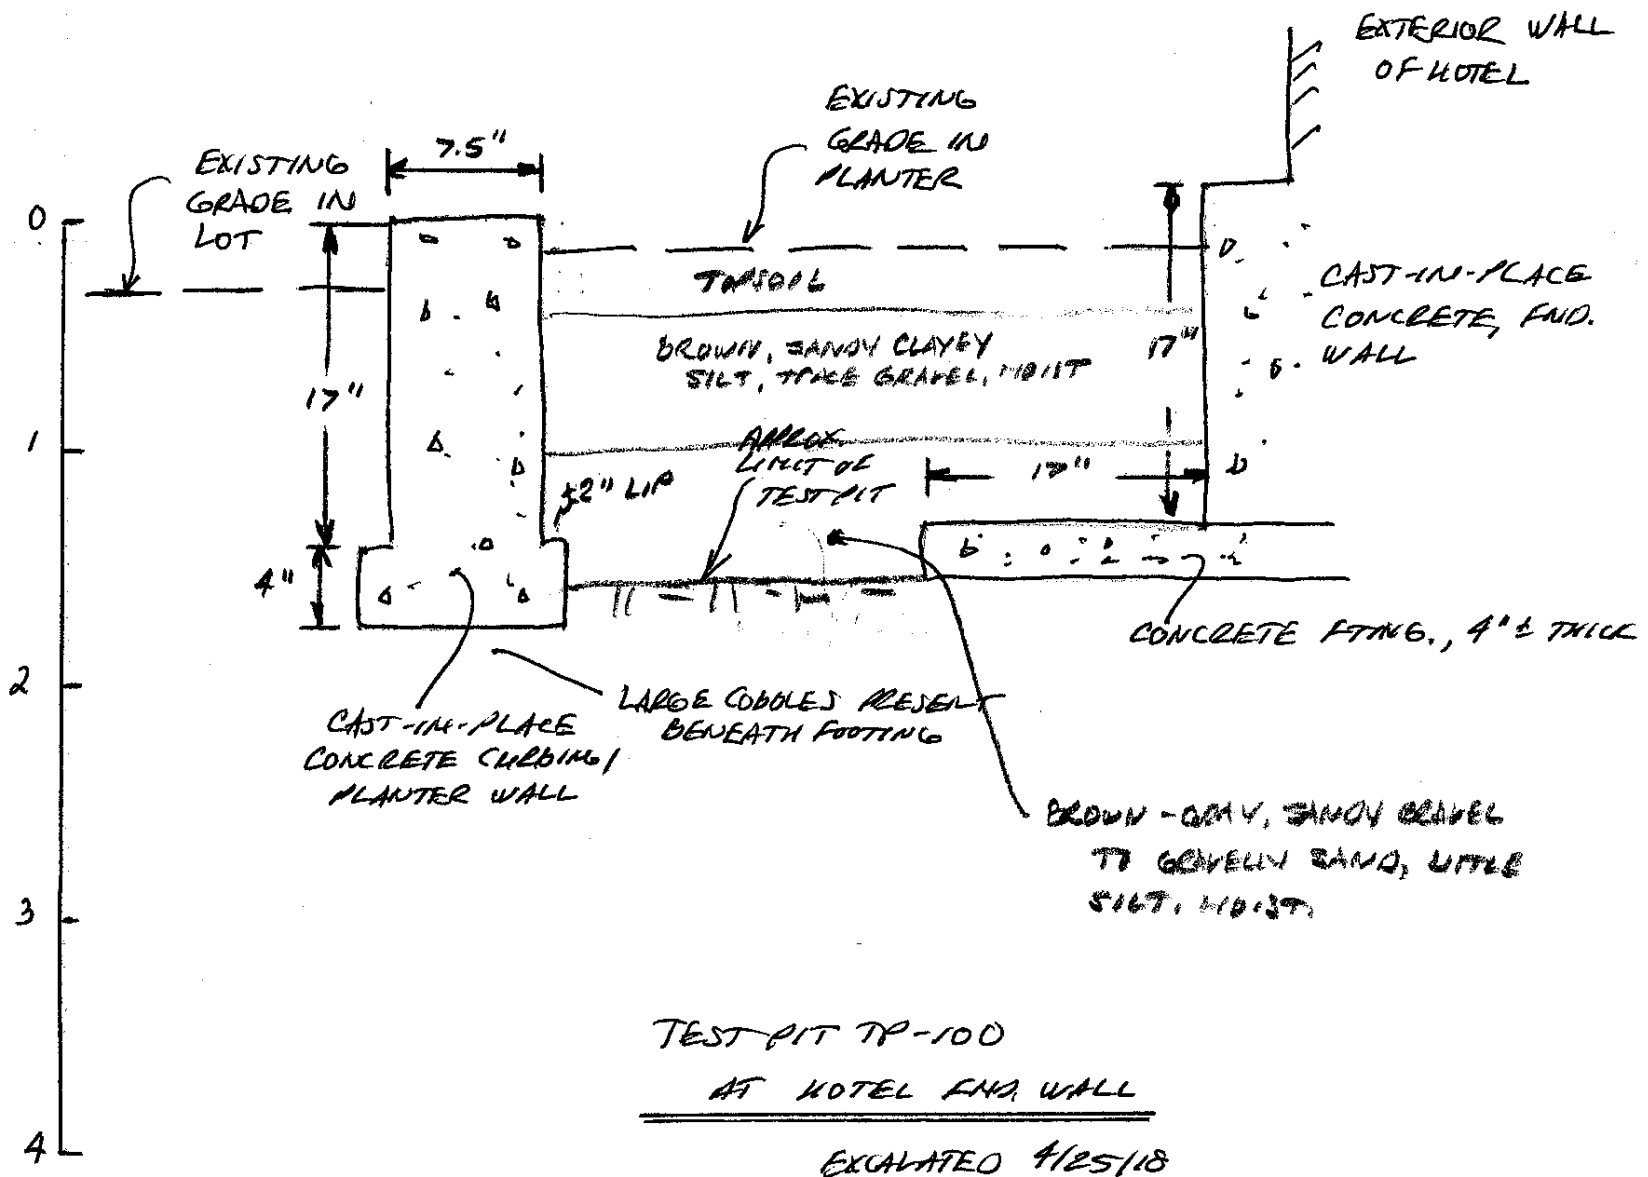 EXTERIOR WALL
OF HOTEL
EXISTING
GRADE IN
PLANTER
7.5"
EXISTING
GRADE IN
LOT
0
TOPSOIL
CAST-IN-PLACE
CONCRETE, FND.
WALL
BROWN, SANDY CLAYEY
SILT, TRACE GRAVEL, MOIST
17"
17"
1
APPROX.
LIMIT OF
TEST PIT
17"
±2" LIP
4"
CONCRETE FTNG., 4"± THICK
2
LARGE COBBLES PRESENT
BENEATH FOOTING
CAST-IN-PLACE
CONCRETE CURBING/
PLANTER WALL
BROWN-GRAY, SANDY GRAVEL
TO GRAVELLY SAND, LITTLE
SILT. MOIST.
3
TEST PIT TP-100
AT HOTEL FND. WALL
EXCAVATED 4/25/18
4